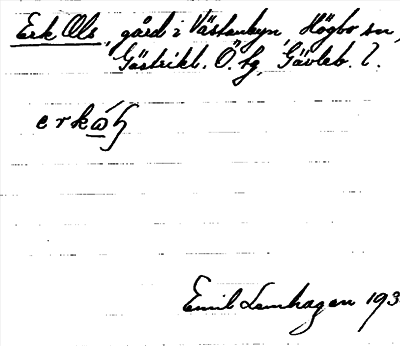 Erk Ols, gård i Västanbyn, Högbo sn,
Gästrikl. Ö. tg, Gävleb. l.
erkωʹɧ
Emil Lenhagen 193